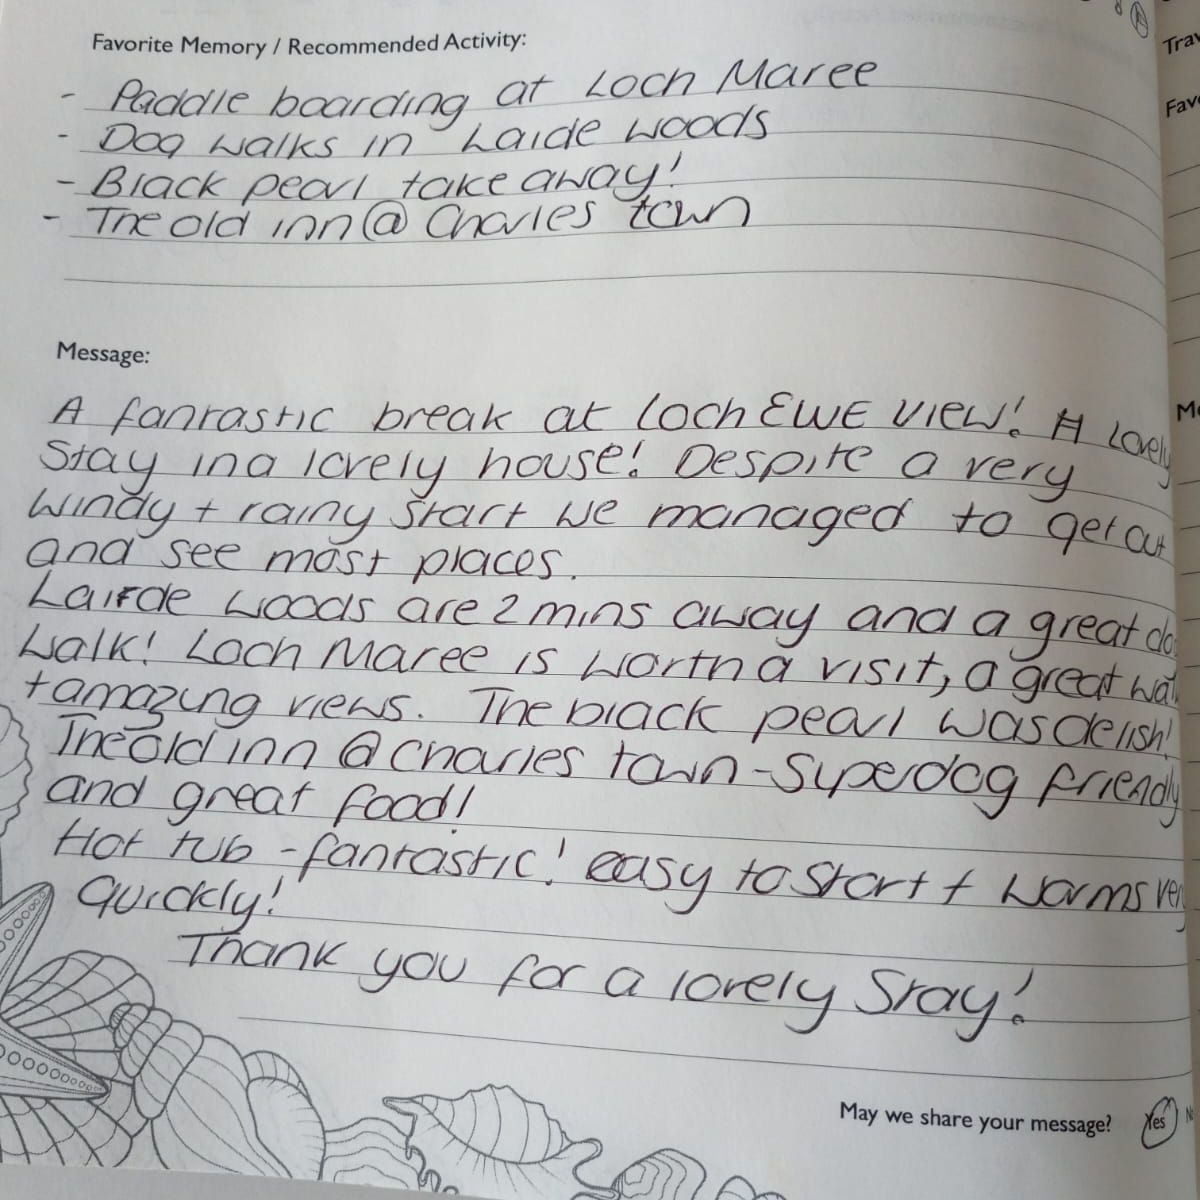 Favorite Memory / Recommended Activity:
- Paddle boarding at Loch Maree
- Dog walks in Laide woods
- Black pearl take away!
- The old inn @ Charles town
Message:
A fantastic break at Loch EWE VIEW! A Lovely
Stay in a lovely house! Despite a very
windy + rainy start we managed to get out
and see most places.
Lairde woods are 2 mins away and a great do
walk! Loch Maree is worth a visit, a great wal
+ amazing views. The black pearl was delish!
The old inn @ charles town - Super dog friendly
and great food!
Hot tub - fantastic! easy to start + warms very
quickly!
Thank you for a lovely Stay!
May we share your message? Yes N
Trav
Favo
Me